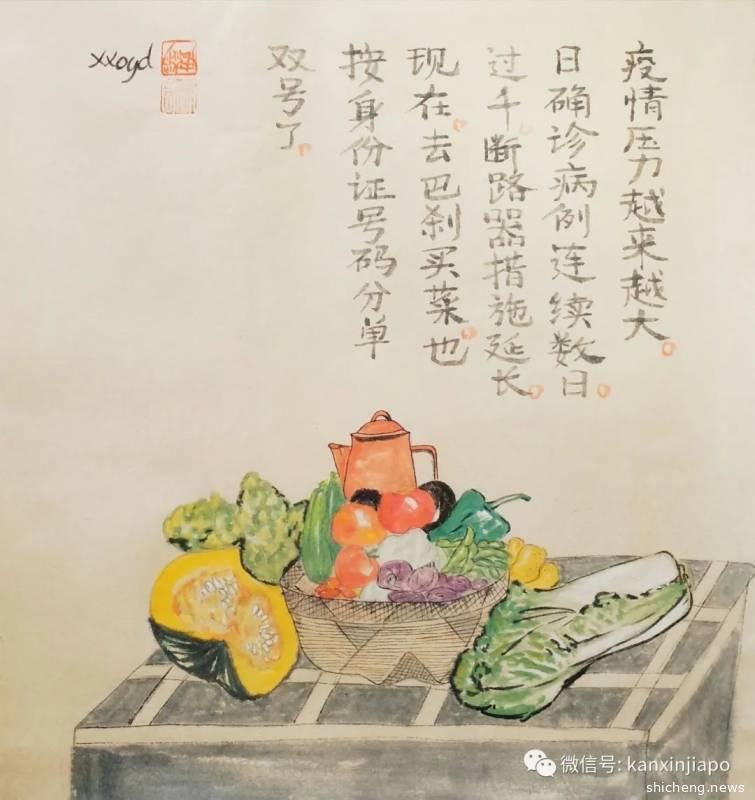 疫情压力越来越大。
日确诊病例连续数日。
过千。断路器措施延长。
现在。去巴刹买菜。也
按身份证号码分单
双号了。
xxogd
微信号: kanxinjiapo
shicheng.news